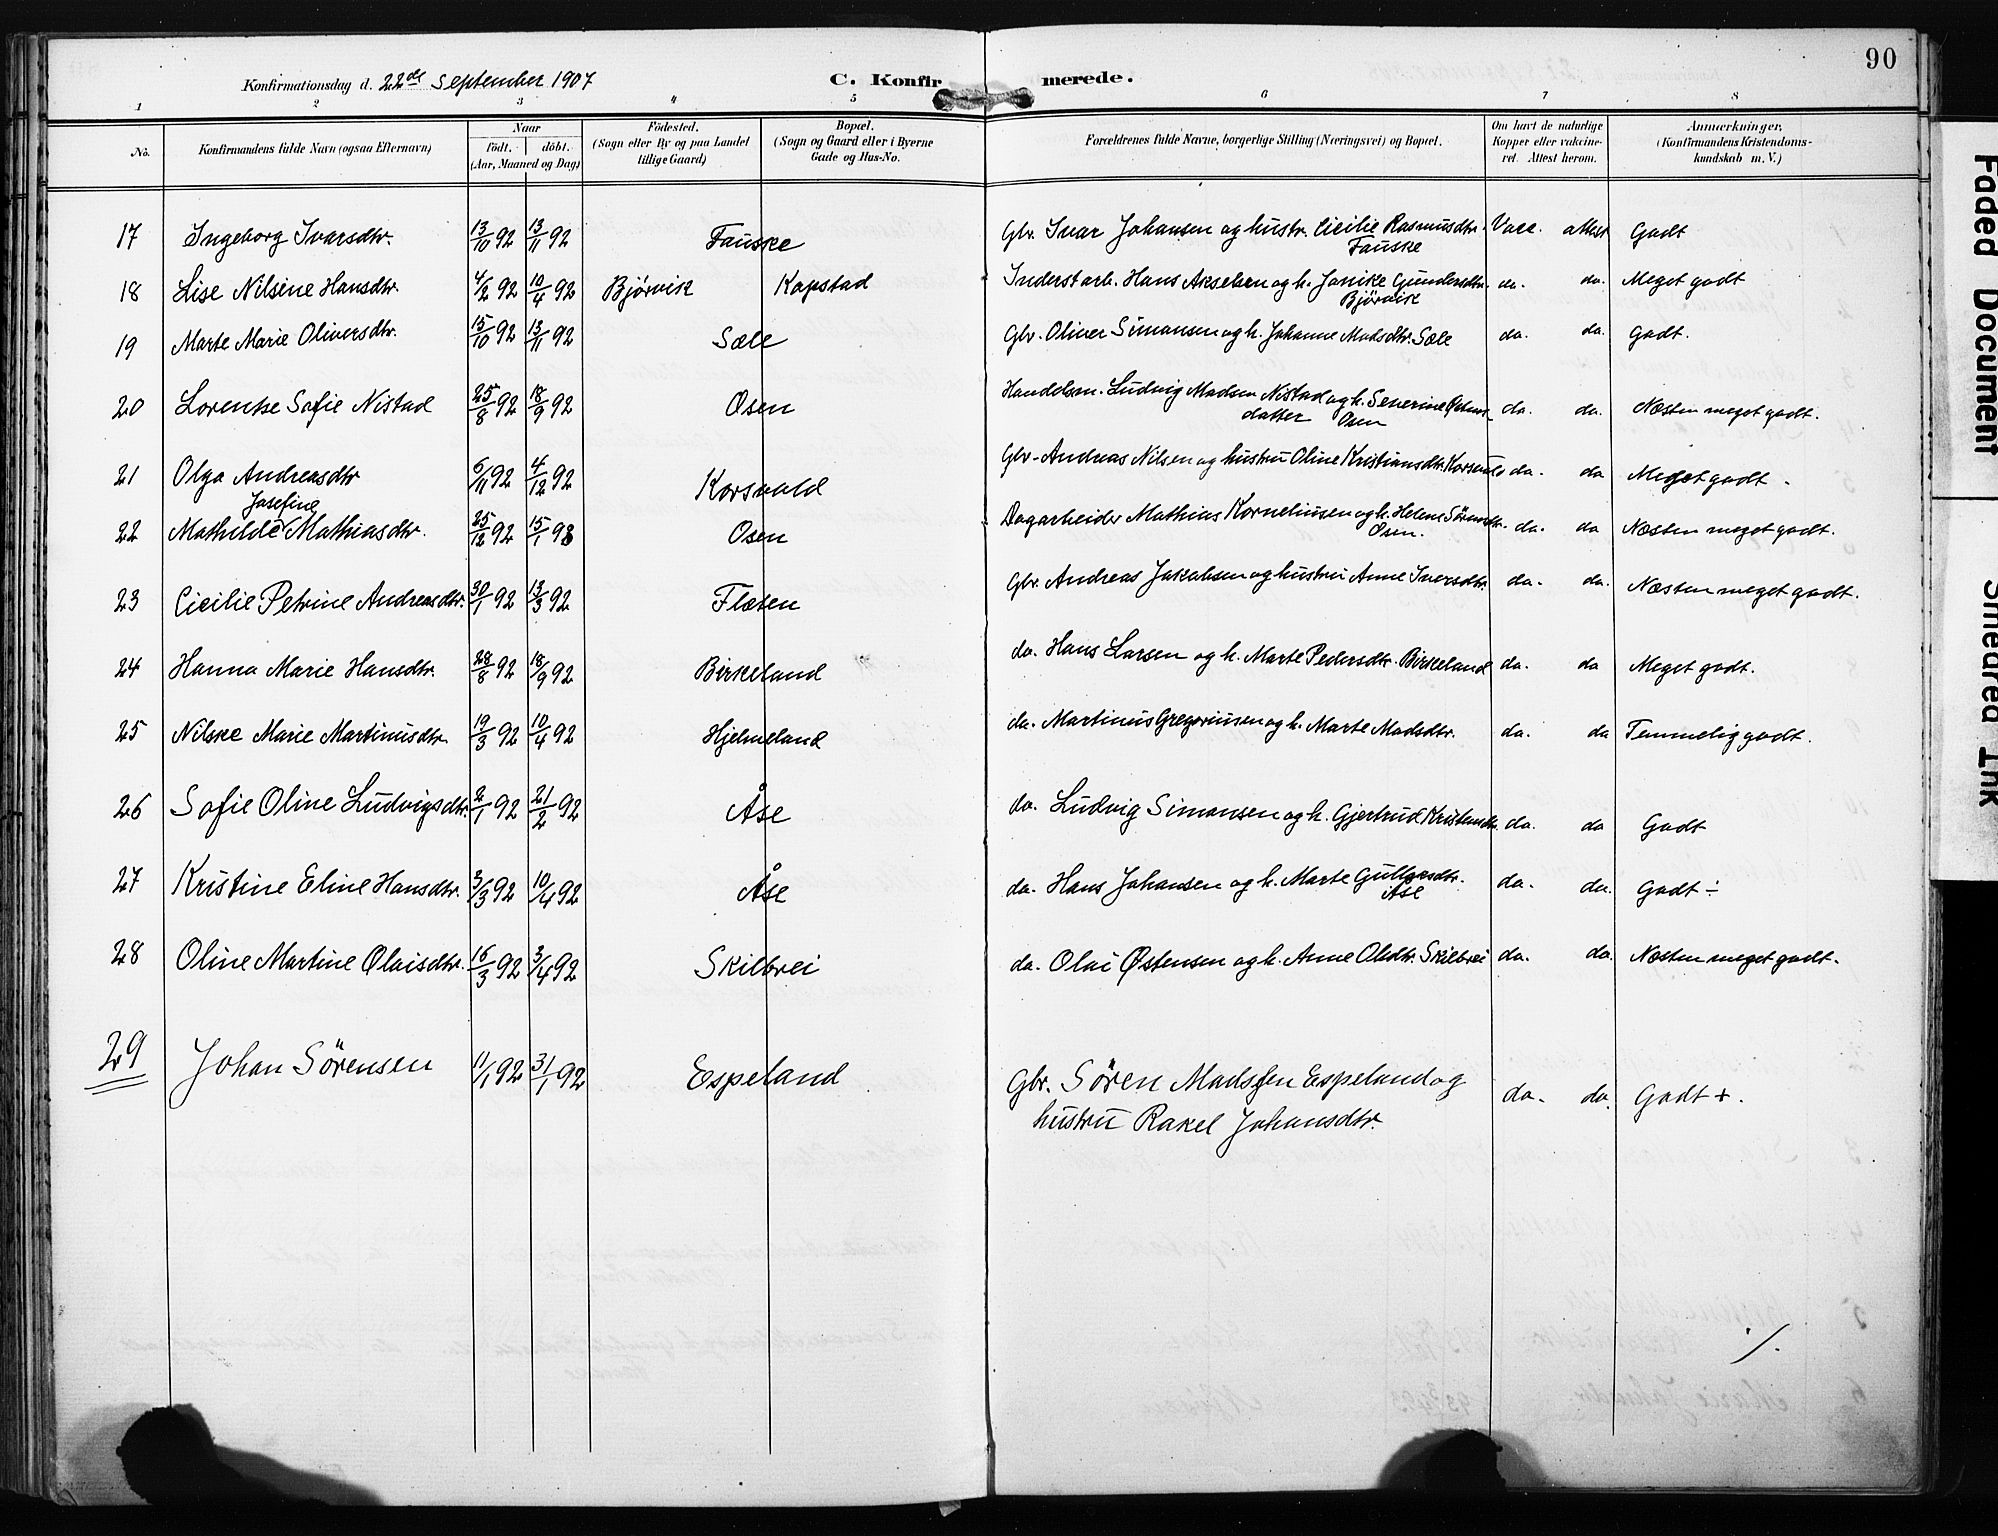 90
Konfirmationsdag d. 22de September 1907 C. Konfirmerede.
1 2 3 4 5 6 7 8
No. Konfirmandens fulde Navn (ogsaa Efternavn) Naar født. døbt. (Aar, Maaned og Dag) Fødested. (Sogn eller By og paa Landet tillige Gaard) Bopæl. (Sogn og Gaard eller i Byerne Gade og Hus-No. Forældrenes fulde Navne, borgerlige Stilling (Næringsvei) og Bopæl. Om havt de naturlige Kopper eller vakcineret. Attest herom. Anmærkninger, (Konfirmandens Kristendomskundskab m. V.)
17 Ingeborg Ivarsdtr. 13/10 92 13/11 92 Fauske Gbr. Ivar Johansen og hustr. Cicilie Rasmusdtr. Vacc. attest Godt
Fauske
18 Lise Nilsine Hansdtr. 4/2 92 10/4 92 Bjørvik Kapstad Inderstarb. Hans Akselsen og h. Janike Gundersdtr. do. do. Meget godt
Bjørvik
19 Marte Marie Oliversdtr. 15/10 92 13/11 92 Sæle Gbr. Oliver Simonsen og h. Johanne Madsdtr. Sæle do. do. Godt.
20 Lorentse Sofie Nistad 25/8 92 18/9 92 Osen Handelsm. Ludvig Madsen Nistad og h. Severine do. do. Næsten meget godt.
datter Osen
21 Olga Andreasdtr 6/11 92 4/12 92 Korsvold Gbr. Andreas Nilsen og hustru Oline Kristiansdtr. do. do Meget godt.
Josefine
22 Mathilde Mathiasdtr. 25/12 92 15/1 93 Osen Dagarbeider Mathias Korneliussen og h. Helene Sørensdtr. do. do Næsten meget godt.
Osen.
23 Cicilie Petrine Andreasdtr. 30/1 92 13/3 92 Flæten Gbr. Andreas Jakobsen og hustru Anne Iversdtr. do. do. Næsten meget godt.
24 Hanna Marie Hansdtr. 28/8 92 18/9 92 Birkeland do. Hans Larsen og h. Marte Pedersdtr. Birkeland do. do Meget godt.
25 Nilske Marie Martinusdtr. 19/3 92 10/4 92 Hjelmeland do. Martinus Gregoriusen og h. Marte Madsdtr. do. do Temmelig godt.
26 Sofie Oline Ludvigsdtr. 2/1 92 21/2 92 Åse do. Ludvig Simonsen og h. Gjertrud Kristensdtr. do. do Godt
27 Kristine Eline Hansdtr. 3/3 92 10/4 92 Åse do. Hans Johansen og h. Marte do. do. Godt ÷
Åse
28 Oline Martine Olaisdtr. 16/3 92 3/4 92 Skilbrei do. Olai Østensen og h. Anne Olsdtr. Skilbrei do. do. Næsten meget godt.
29 Johan Sørensen 11/1 92 31/1 92 Espeland Gbr. Søren Madssen Espeland og do. do. Godt +.
hustru Rakel Johansdtr.
Faded Document
Smeared Ink